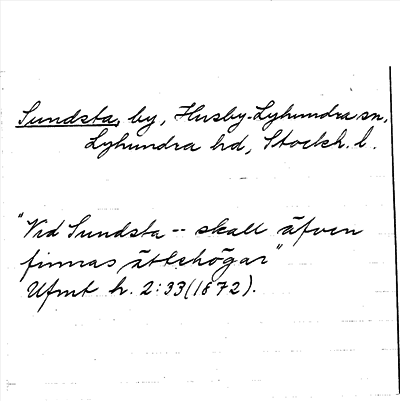 Sundsta, by, Husby-Lyhundra sn,
Lyhundra hd, Stockh. l.
"Vid Sundsta -- skall äfven
finnas ättehögar"
Ufmt h. 2:33(1872).